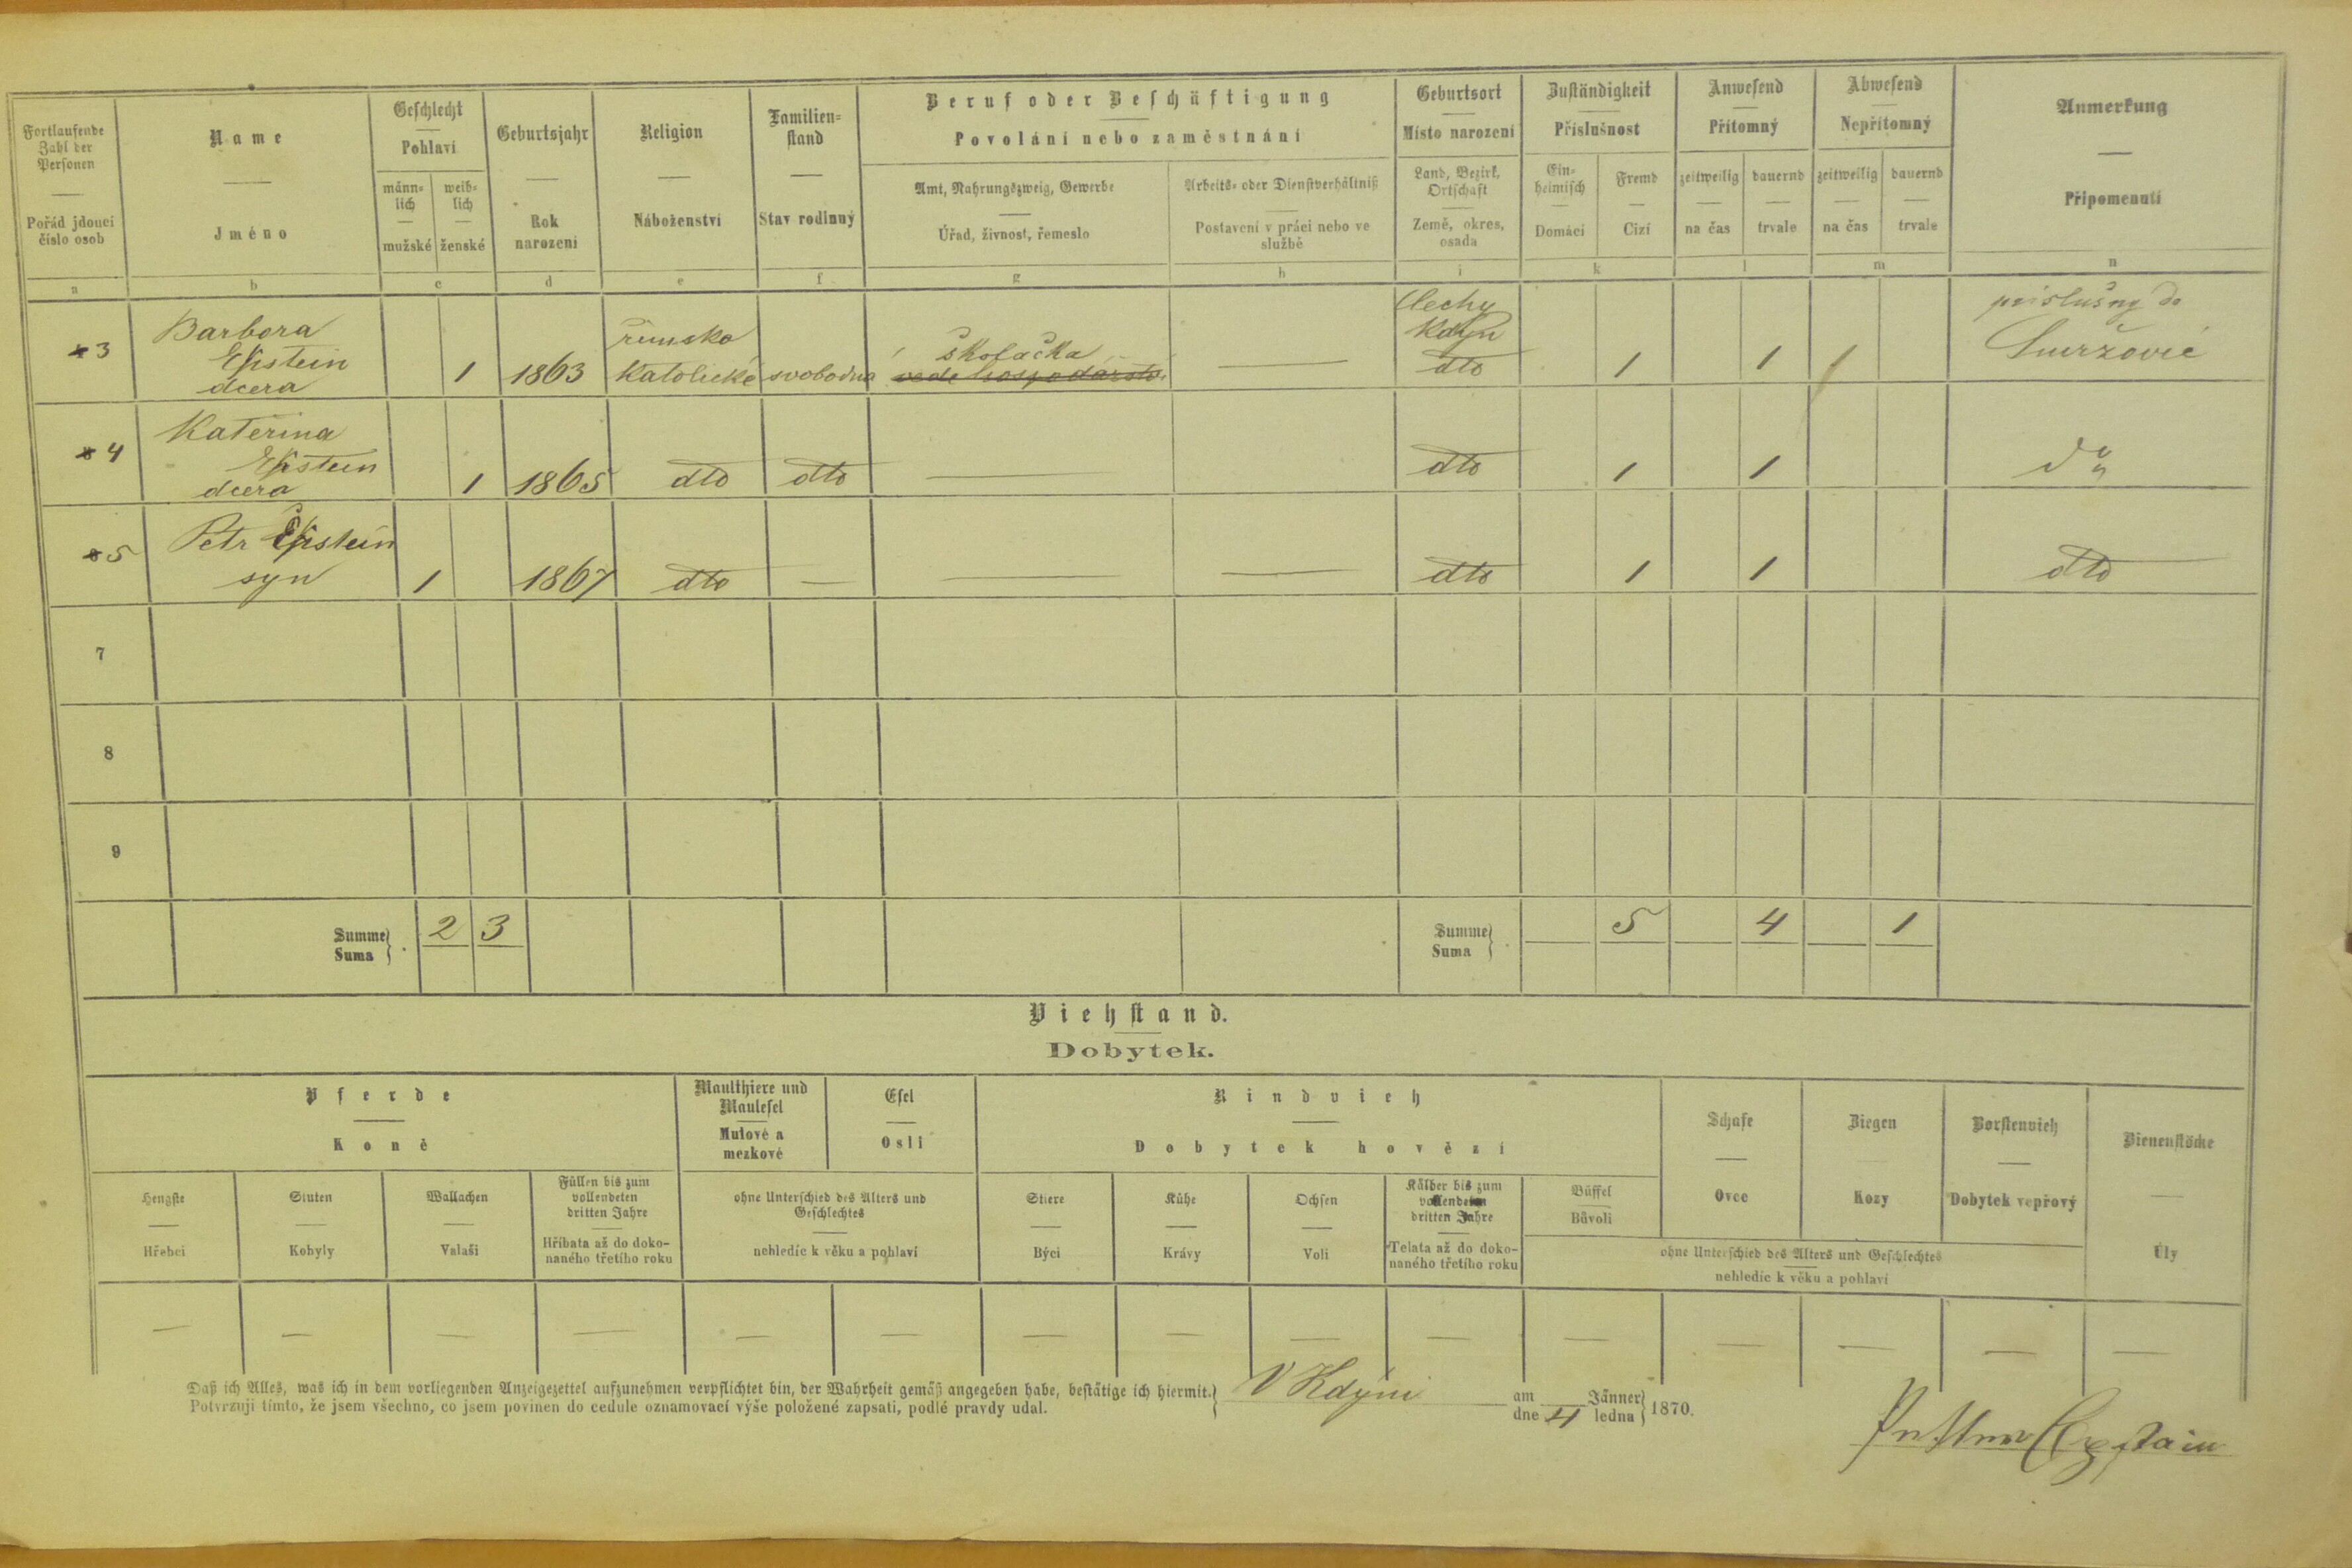 Fortlaufende Zahl der Personen
Pořád jdoucí číslo osob
Name
Jméno
Geschlecht
Pohlaví
männ-lich
mužské
weib-lich
ženské
Geburtsjahr
Rok narození
Religion
Náboženství
Familien-stand
Stav rodinný
Beruf oder Beschäftigung
Povolání nebo zaměstnání
Amt, Nahrungszweig, Gewerbe
Úřad, živnost, řemeslo
Arbeits- oder Dienstverhältniß
Postavení v práci nebo ve službě
Geburtsort
Místo narození
Land, Bezirk, Ortschaft
Země, okres, osada
Zuständigkeit
Příslušnost
Ein-heimisch
Domácí
Fremd
Cizí
Anwesend
Přítomný
zeitweilig
na čas
dauernd
trvale
Abwesend
Nepřítomný
zeitweilig
na čas
dauernd
trvale
Anmerkung
Připomenutí
a b c d e f g h i k l m n
3 Barbora Epstein dcera 1 1863 římsko katolické svobodná školačka vede hospodářství Čechy Kdyň dto 1 1 1 příslušný do
4 Kateřina Epstein dcera 1 1865 dto dto dto 1 1
5 Petr Epstein syn 1 1867 dto — dto 1 1 dto
7
8
9
Summe
Suma
2 3
Summe
Suma
5 4 1
Viehstand.
Dobytek.
Pferde
Koně
Hengste
Hřebci
Stuten
Kobyly
Wallachen
Valaši
Füllen bis zum vollendeten dritten Jahre
Hříbata až do doko-naného třetího roku
Maulthiere und Maulesel
Mulové a mezkové
Esel
Osli
ohne Unterschied des Alters und Geschlechtes
nehledíc k věku a pohlaví
Rindvieh
Dobytek hovězí
Stiere
Býci
Kühe
Krávy
Ochsen
Voli
Kälber bis zum vollendeten dritten Jahre
Telata až do doko-naného třetího roku
Büffel
Bůvoli
Schafe
Ovce
Ziegen
Kozy
Borstenvieh
Dobytek vepřový
ohne Unterschied des Alters und Geschlechtes
nehledíc k věku a pohlaví
Bienenstöcke
Úly
Daß ich Alles, was ich in dem vorliegenden Anzeigezettel aufzunehmen verpflichtet bin, der Wahrheit gemäß angegeben habe, bestätige ich hiermit.
Potvrzuji tímto, že jsem všechno, co jsem povinen do cedule oznamovací výše položené zapsati, podlé pravdy udal.
V Kdýni
am
dne 4 Jänner
ledna 1870.